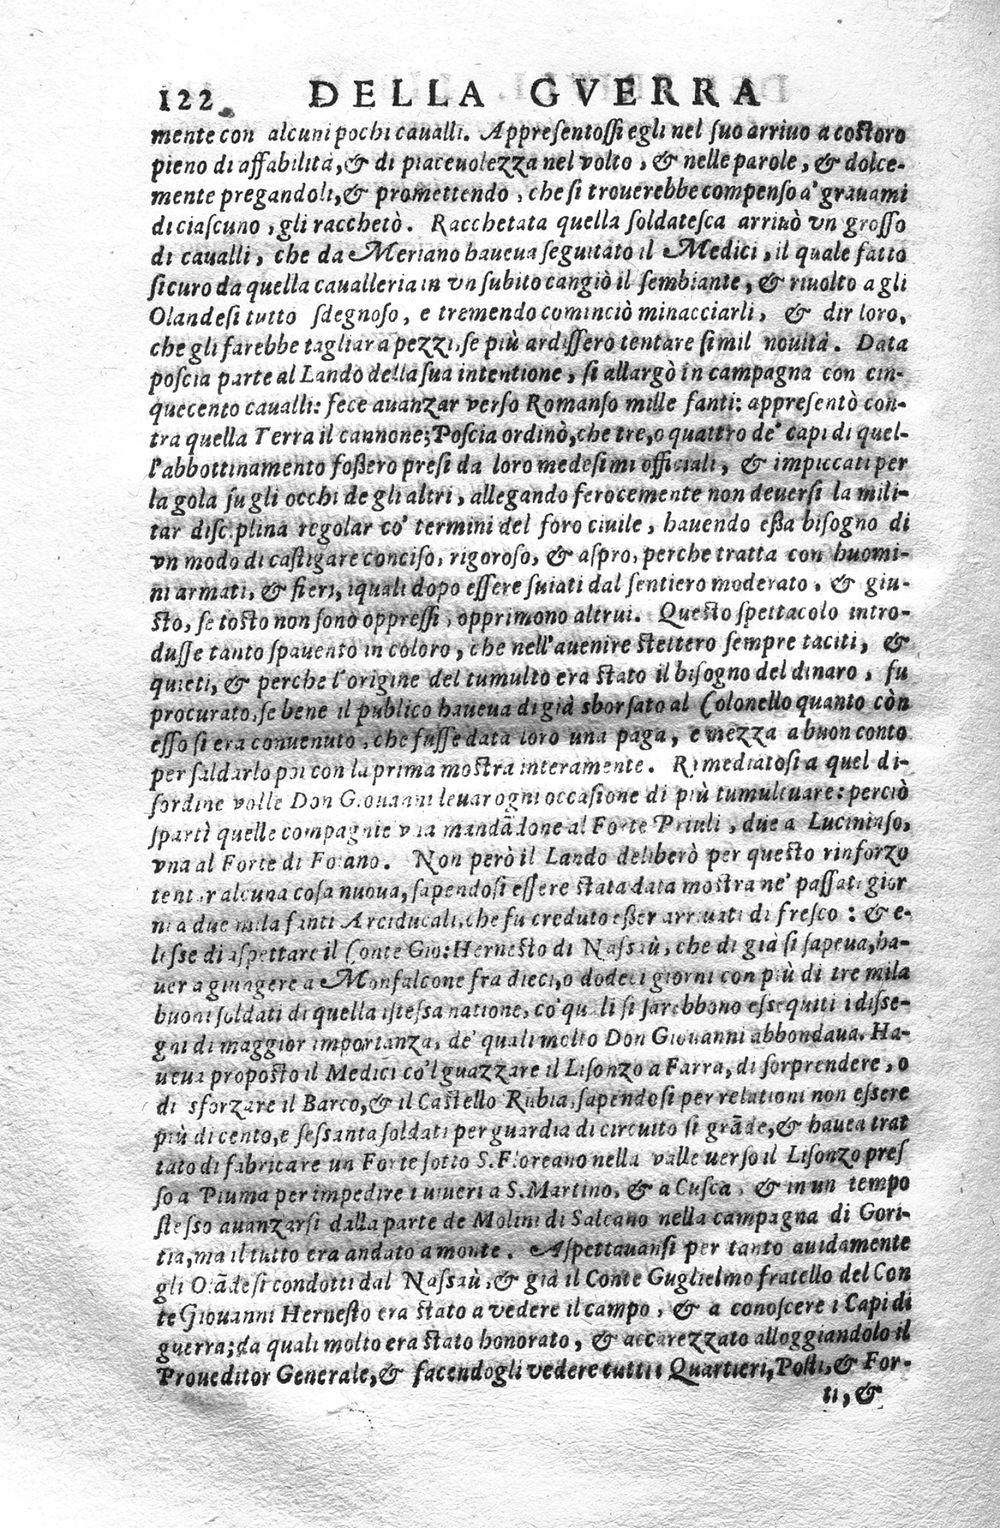 122 DELLA GVERRA
mente con alcuni pochi caualli. Appresentossi egli nel suo arriuo a costoro
pieno di affabilità, & di piaceuolezza nel volto, & nelle parole, & dolce-
mente pregandoli, & promettendo, che si trouerebbe compenso a' grauami
di ciascuno, gli racchetò. Racchetata quella soldatesca arriuò vn grosso
di caualli, che da Meriano haueua seguitato il Medici, il quale fatto
sicuro da quella caualleria in vn subito cangiò il sembiante, & riuolto a gli
Olandesi tutto sdegnoso, e tremendo cominciò minacciarli, & dir loro,
che gli farebbe tagliar a pezzi, se più ardissero tentare simil nouità. Data
poscia parte al Lando della sua intentione, si allargò in campagna con cin-
quecento caualli: fece auanzar verso Romanso mille fanti: appresentò con-
tra quella Terra il cannone; Poscia ordinò, che tre, o quattro de' capi di quel-
l'abbottinamento foßero presi da loro medesimi officiali, & impiccati per
la gola su gli occhi de gli altri, allegando ferocemente non deuersi la mili-
tar disciplina regolar co' termini del foro ciuile, hauendo eßa bisogno di
vn modo di castigare conciso, rigoroso, & aspro, perche tratta con huomi-
ni armati, & fieri, i quali dopo essere suiati dal sentiero moderato, & giu-
sto, se tosto non sono oppressi, opprimono altrui. Questo spettacolo intro-
dusse tanto spauento in coloro, che nell'auenire stettero sempre taciti, &
quieti, & perche l'origine del tumulto era stato il bisogno del dinaro, fu
procurato, se bene il publico haueua di già sborsato al Colonello quanto còn
esso si era conuenuto, che fusse data loro una paga, e mezza a buon conto
per saldarlo poi con la prima mostra interamente. Rimediatosi a quel di-
sordine volle Don Giouanni leuar ogni occasione di più tumultuare: perciò
spartì quelle compagnie vna mandãdone al Forte Priuli, due a Luciniso,
vna al Forte di Foiano. Non però il Lando deliberò per questo rinforzo
tentar alcuna cosa nuova, sapendosi essere stata data mostra ne' passati gior
ni a due mila fanti Arciducali, che fu creduto eßer arriuati di fresco: & e-
lesse di aspettare il Conte Gio: Hernesto di Nassaù, che di già si sapeua, ha-
uer a giugnere a Monfalcone fra dieci, o dodeci giorni con più di tre mila
buoni soldati di quella istessa natione, co' quali si sarebbono essequiti i disse-
gni di maggior importanza, de' quali molto Don Giouanni abbondaua. Ha-
ueua proposto il Medici co'l guazzare il Lisonzo a Farra, di sorprendere, o
di sforzare il Barco, & il Castello Rubia, sapendosi per relationi non essere
più di cento, e sessanta soldati per guardia di circuito si grãde, & hauea trat
tato di fabricare un Forte sotto S. Floreano nella valle uerso il Lisonzo pres
so a Piuma per impedire i uiueri a S. Martino, & a Cusca, & in un tempo
stesso auanzarsi dalla parte de Molini di Salcano nella campagna di Gori-
tia, ma il tutto era andato a monte. Aspettauansi per tanto auidamente
gli Olãdesi condotti dal Nassaù, & già il Conte Guglielmo fratello del Con
te Giouanni Hernesto era stato a vedere il campo, & a conoscere i Capi di
guerra; da quali molto era stato honorato, & accarezzato alloggiandolo il
Proueditor Generale, & facendogli vedere tutti i Quartieri, Posti, & For-
ti, &